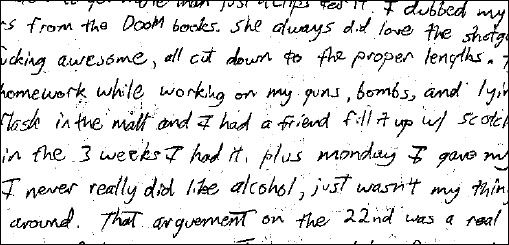 just clips fed it. I dubbed my
s from the Doom books. she always did love the shotg
cking awesome, all cut down to the proper lengths.
homework while working on my guns, bombs, and lyin
flask in the mall and I had a friend fill it up w/ scotch
in the 3 weeks I had it. plus monday I gave my
I never really did like alcohol, just wasn't my thin
around. That arguement on the 22nd was a real